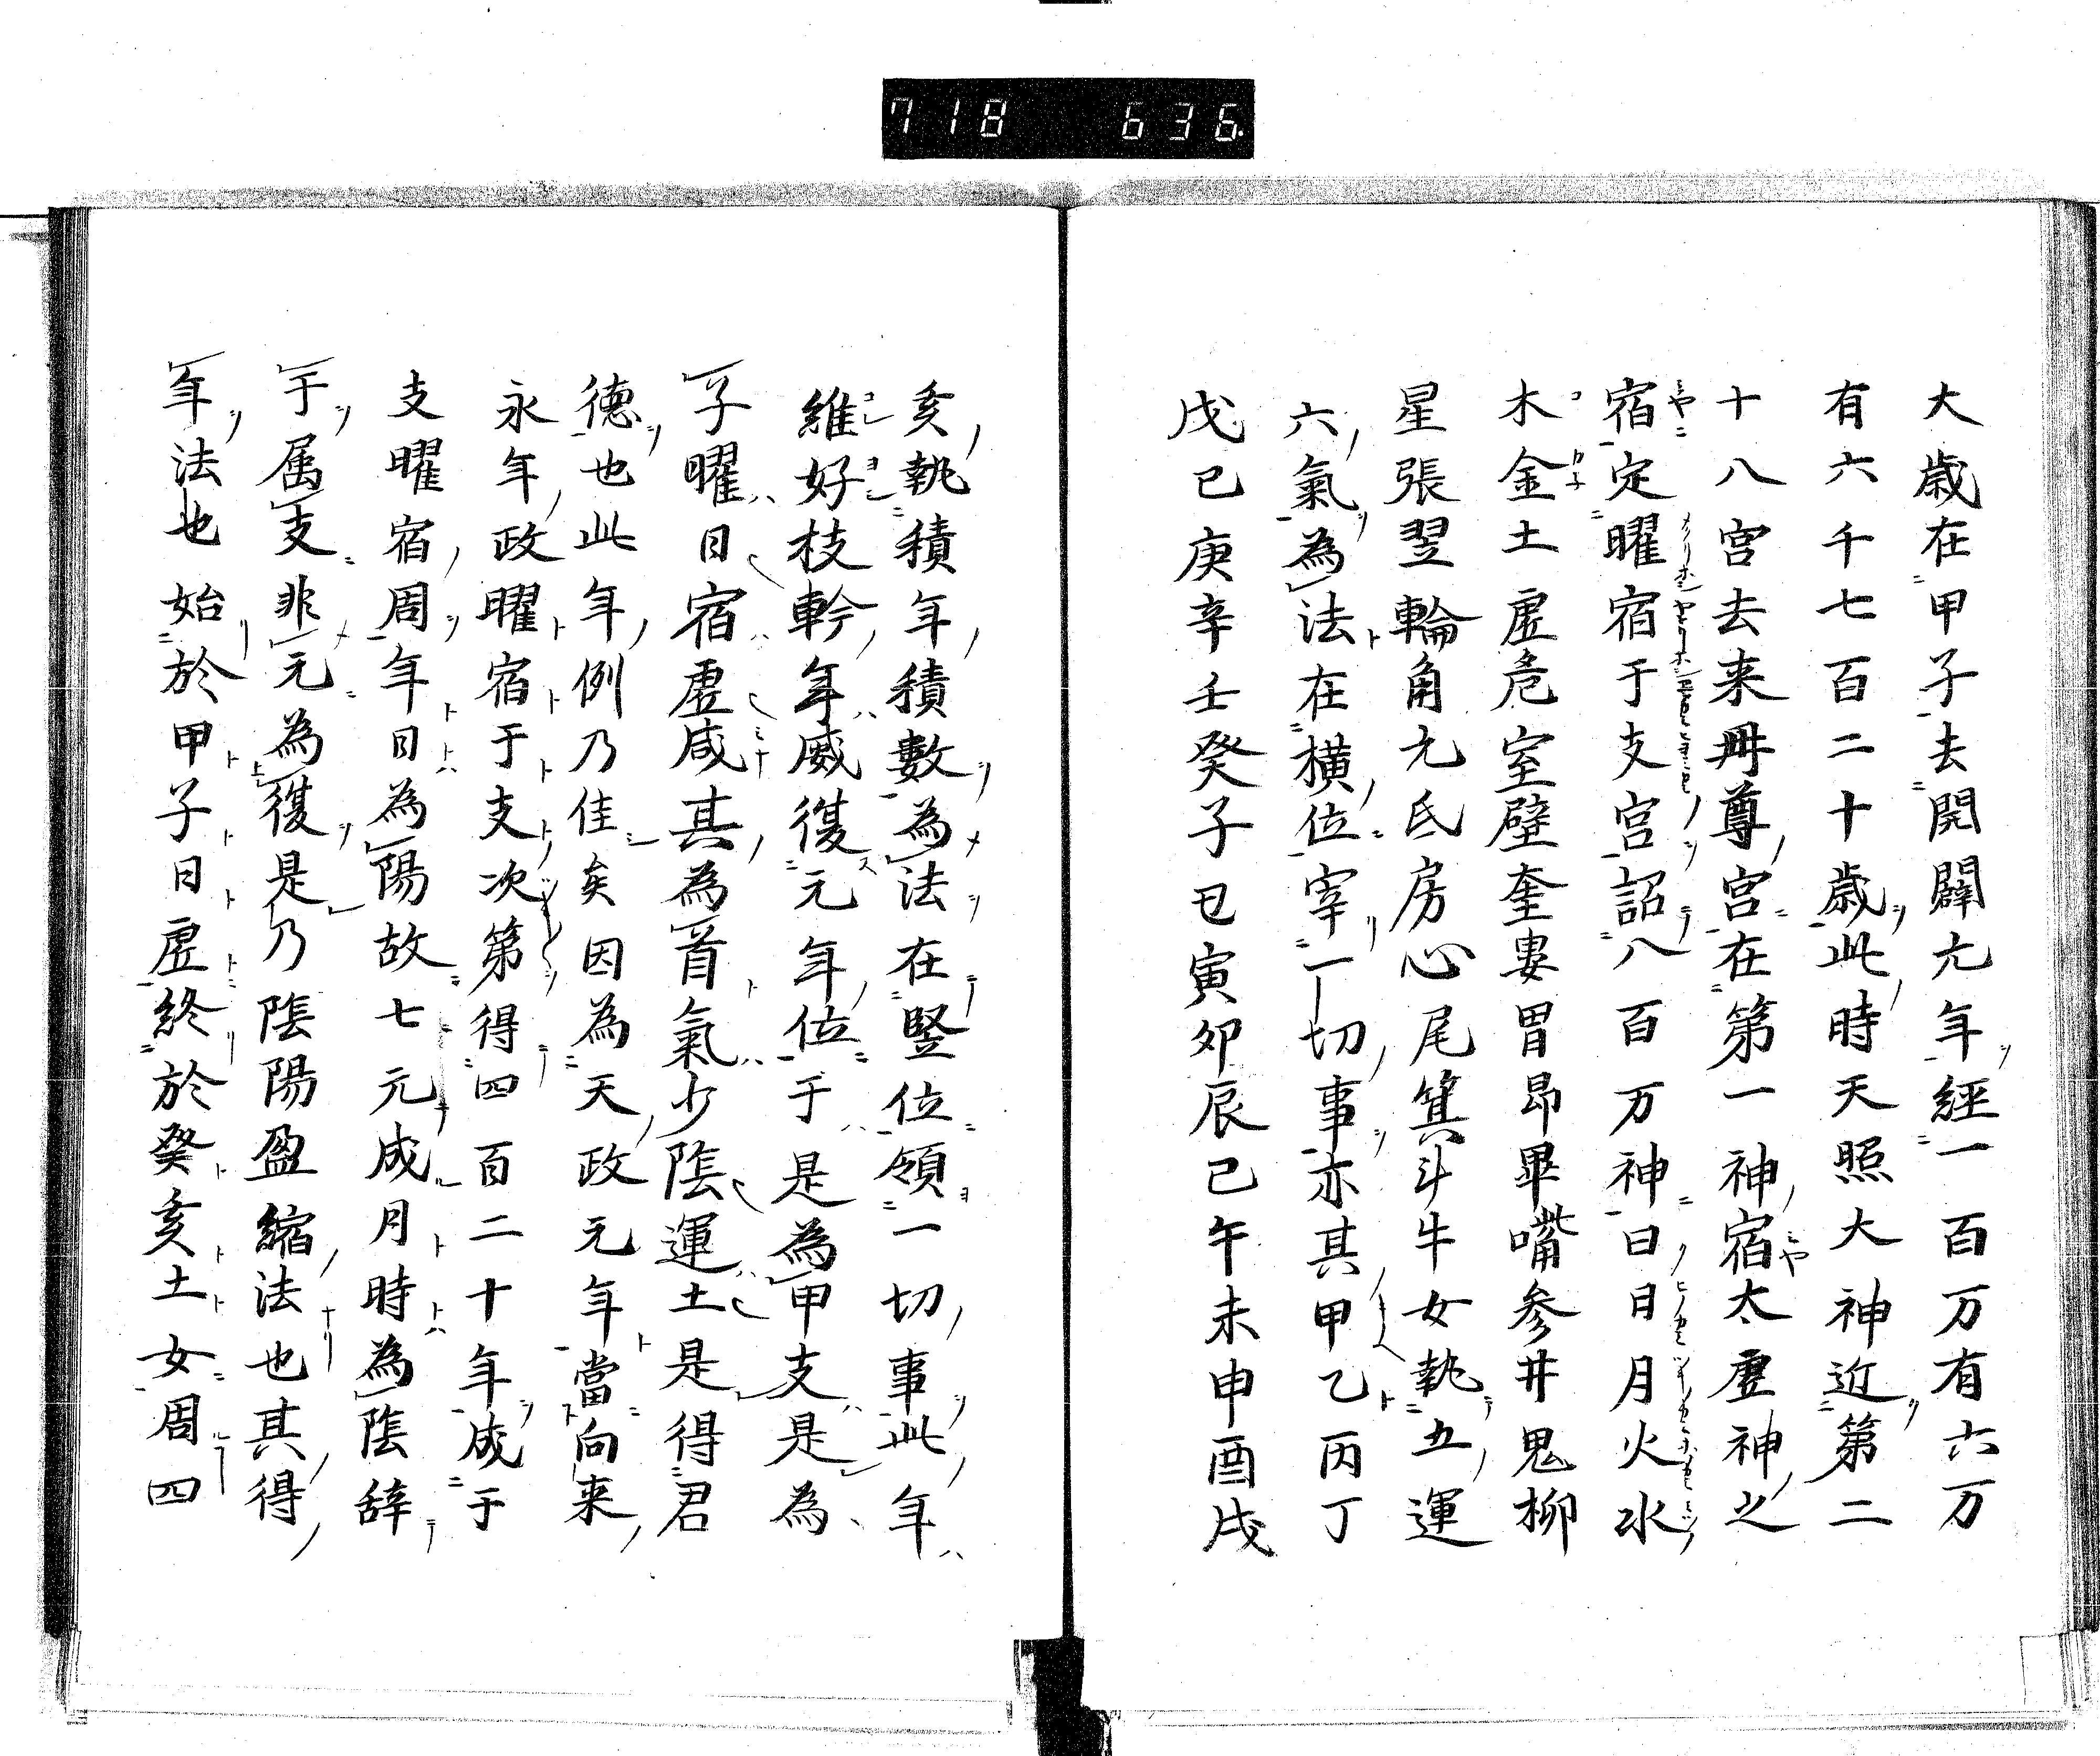 718 636
大歳在甲子去開闢元年經一百万有六万
有六千七百二十歳此時天照大神近第二
十八宮去来冊尊宮在第一神宿太虚神之
宿定曜宿于支宮詔八百万神曰日月火水
木金土虚危室壁奎婁胃昴畢嘴参井鬼柳
星張翌輪角亢氐房心尾箕斗牛女執五運
六氣為法在横位宰一切事亦其甲乙丙丁
戊己庚辛壬癸子丑寅卯辰巳午未申酉戌
亥執積年積數為法在竪位領一切事此年
維好枝幹年威復元年位于是為甲支是為
子曜日宿虚咸其為首氣少陰運土是得君
德也此年例乃佳矣因為天政元年當向来
永年政曜宿于支次第得四百二十年成于
支曜宿周年日為陽故七元成月時為陰辞
于属支非元為復是乃陰陽盈縮法也其得
年法也始於甲子日虚終於癸亥土女周四